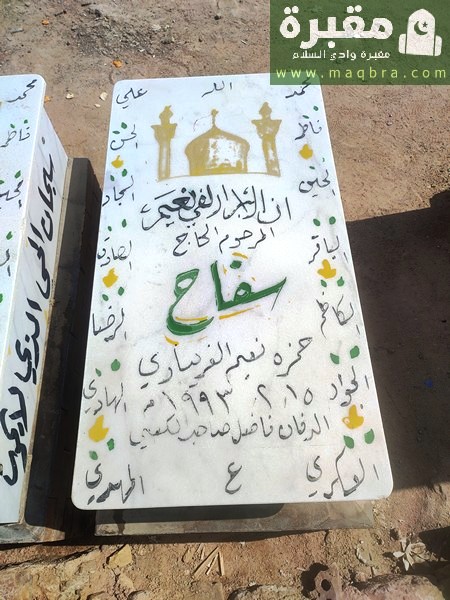 مقبرة
مقبرة وادي السلام
www.maqbra.com
محمد
الله
علي
فاطمة
الحسن
الحسين
السجاد
الباقر
الصادق
الكاظم
الرضا
الجواد
الهادي
العسكري
ع
المهدي
ان الابرار لفي نعيم
المرحوم الحاج
سفاح
حمزه نعيم الغريباوي
١٥ . ٢ . ١٩٩٣ م
الدفان فاضل صاحب الكعبي
محمد
سبحان الحي الذي لا يموت